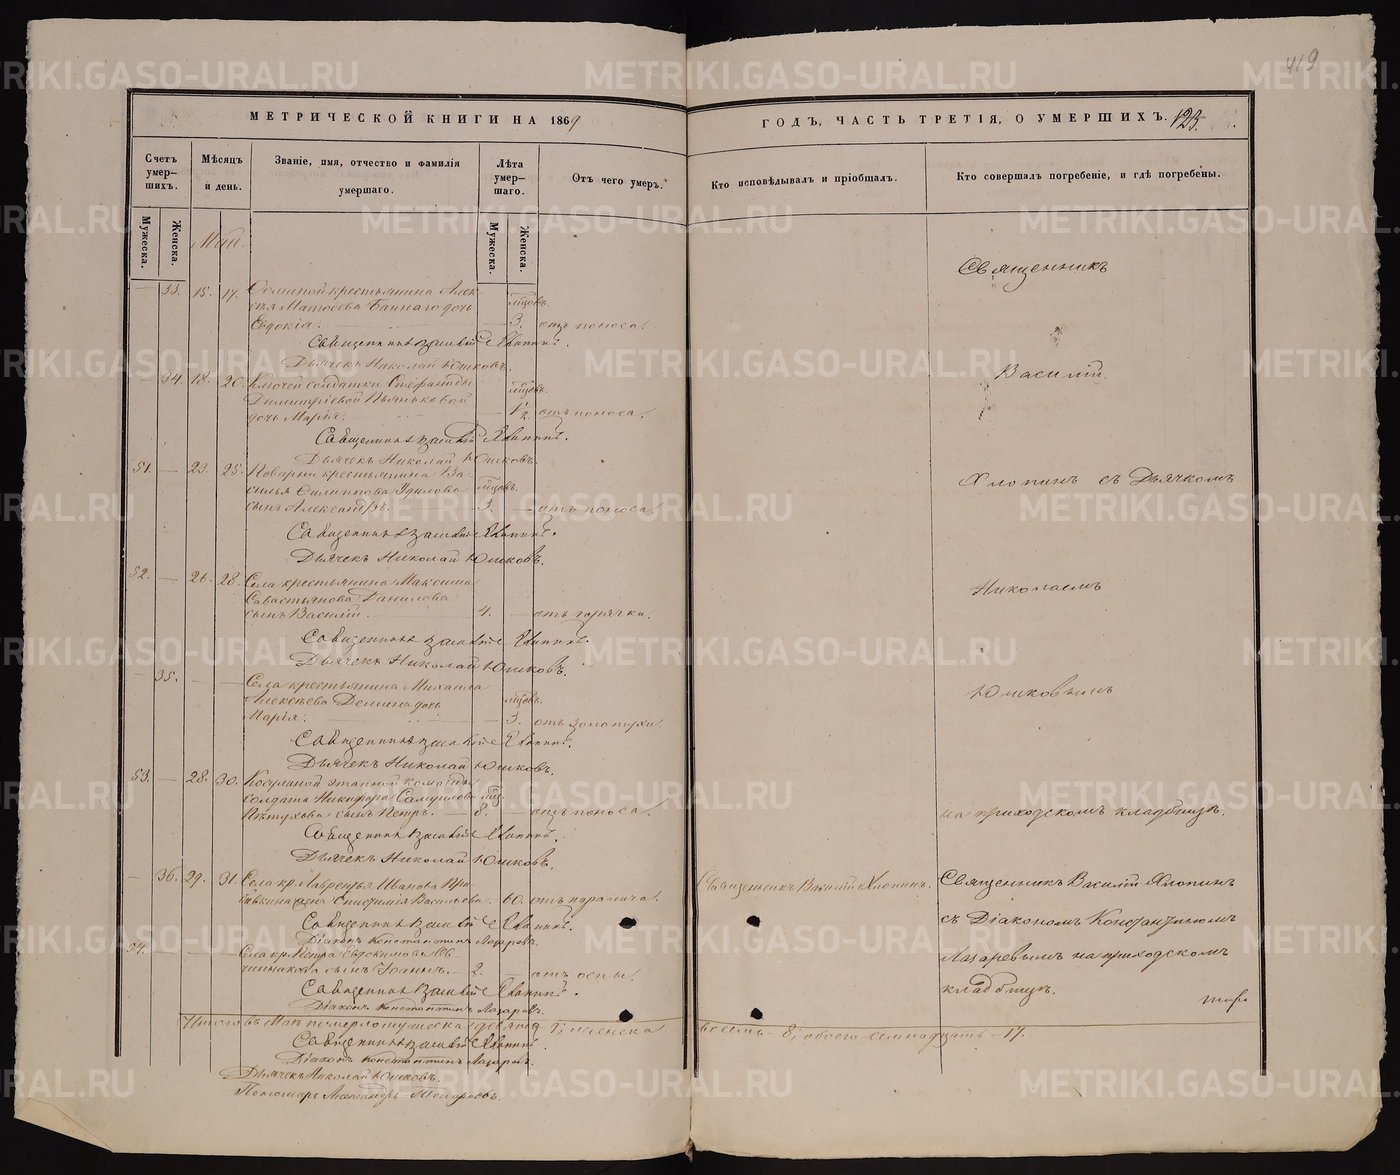 419
МЕТРИЧЕСКОЙ КНИГИ НА 1869
ГОДЪ, ЧАСТЬ ТРЕТІЯ, О УМЕРШИХЪ. 123.
Счетъ умер-шихъ.
Мѣсяцъ и день.
Званіе, имя, отчество и фамилія умершаго.
Лѣта умер-шаго.
Отъ чего умеръ.
Кто исповѣдывалъ и пріобщалъ.
Кто совершалъ погребеніе, и гдѣ погребены.
Мужеска. Женска.
Мужеска. Женска.
Май.
Священникъ
— 33. 15. 17. крестьянина Алек-
сѣя Матвѣева дочь мѣсяцовъ.
Евдокія. — 3. отъ поноса.
Священникъ Василій Хлопинъ.
Дьячекъ Николай Юшковъ.
Василій
— 34. 18. 20. Ключей солдатки Стефаниды мѣсцовъ.
Димитріевой Пьяньковой
дочь Марія. — 1½ отъ поноса.
Священникъ Василій Хлопинъ.
Дьячекъ Николай Юшковъ.
51. — 23. 25. крестьянина Ва-
силья Филиппова мѣсцовъ.
сынъ Александръ. 3. — отъ поноса.
Хлопинъ съ Дьячкомъ
Священникъ Василій Хлопинъ.
Дьячекъ Николай Юшковъ.
52. — 26. 28. Села крестьянина Максима
Севастьянова Данилова
сынъ Василій. 4. — отъ горячки.
Николаемъ
Священникъ Василій Хлопинъ.
Дьячекъ Николай Юшковъ.
— 35. — — Села крестьянина Михаила
Алексѣева Демина дочь мѣсцовъ.
Марія. — 3. отъ золотухи.
Юшковымъ
Священникъ Василій Хлопинъ.
Дьячекъ Николай Юшковъ.
53. — 28. 30. Косулиной этапной команды
солдата Никифора Самуилова мѣсц.
Пѣтухова сынъ Петръ. — 8. — отъ поноса.
на приходскомъ кладбищѣ.
Священникъ Василій Хлопинъ.
Дьячекъ Николай Юшковъ.
— 36. 29. 31. Села кр. Лаврентья Иванова
жена Васильева. 60. отъ паралича.
Священникъ Василій Хлопинъ.
Священникъ Василій Хлопинъ
съ Діакономъ Константиномъ
Лазаревымъ на приходскомъ
кладбищѣ.
Священникъ Василій Хлопинъ.
Діаконъ Константинъ Лазаревъ.
54. — — — Села кр. Петра Евдокимова Ов-
чинникова сынъ Іоаннъ. — 2. — отъ оспы.
Священникъ Василій Хлопинъ.
Діаконъ Константинъ Лазаревъ.
Итого въ Маѣ померло мужеска девять 9; женска восемь — 8; обоего семнадцать — 17.
Священникъ Василій Хлопинъ.
Діаконъ Константинъ Лазаревъ.
Дьячекъ Николай Юшковъ.
Пономарь Александръ
METRIKI.GASO-URAL.RU